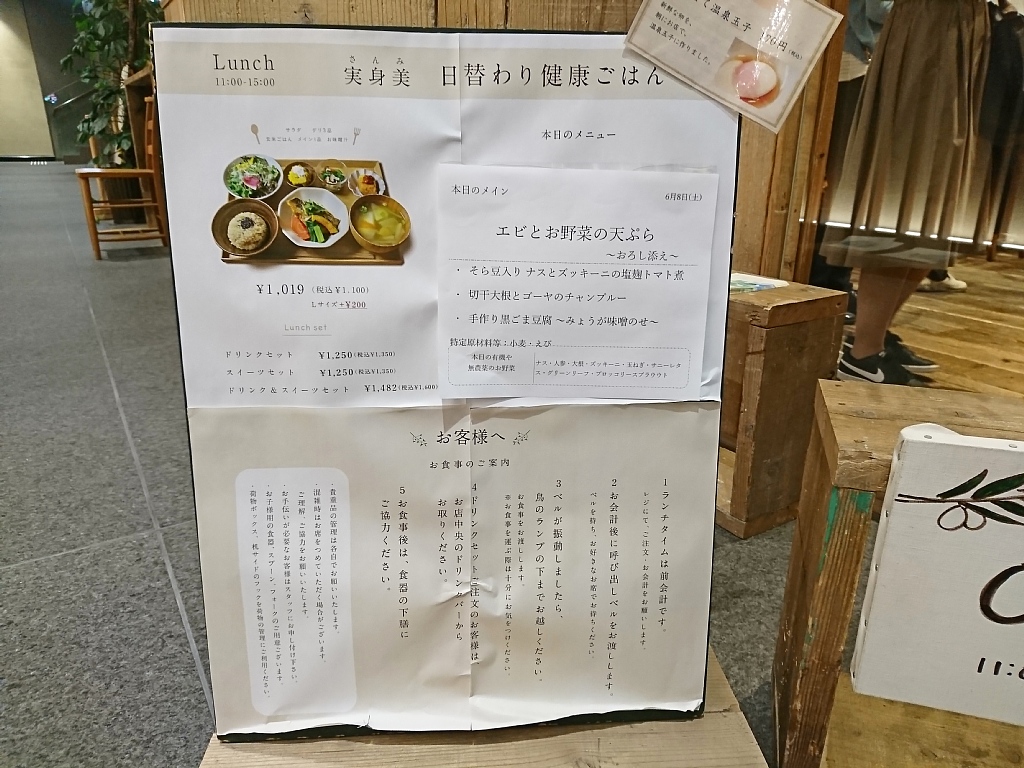 Lunch
11:00-15:00
さんみ
実身美 日替わり健康ごはん
温泉玉子
新鮮な卵を、
朝にお店で、
温泉玉子に作りました。
サラダ デリ3品
玄米ごはん メイン1品 お味噌汁
¥1,019 (税込¥1,100)
Lサイズ+¥200
Lunch set
ドリンクセット ¥1,250(税込¥1,350)
スイーツセット ¥1,250(税込¥1,350)
ドリンク&スイーツセット ¥1,482(税込¥1,600)
本日のメニュー
本日のメイン 6月8日(土)
エビとお野菜の天ぷら
～おろし添え～
・ そら豆入り ナスとズッキーニの塩麹トマト煮
・ 切干大根とゴーヤのチャンプルー
・ 手作り黒ごま豆腐 ～みょうが味噌のせ～
特定原材料等：小麦・えび
本日の有機や
無農薬のお野菜
ナス・人参・大根・ズッキーニ・玉ねぎ・サニーレタ
ス・グリーンリーフ・ブロッコリースプラウト
お客様へ
お食事のご案内
1 ランチタイムは前会計です。
レジにて、ご注文・お会計をお願いします。
2 お会計後に呼び出しベルをお渡しします。
ベルを持ち、お好きなお席でお待ちください。
3 ベルが振動しましたら、
鳥のランプの下までお越しください。
お食事をお渡しします。
※お食事を運ぶ際は十分にお気をつけください。
4 ドリンクセットご注文のお客様は、
お店中央のドリンクバーから
お取りください。
5 お食事後は、食器の下膳に
ご協力ください。
・貴重品の管理は各自でお願いいたします。
・混雑時はお席をつめていただく場合がございます。
ご理解、ご協力をお願いいたします。
・お手伝いが必要なお客様はスタッフにお申し付け下さい。
・お子様用の食器、スプーン、フォークのご用意ございます。
・荷物ボックス、机サイドのフックを荷物の管理にご利用ください。